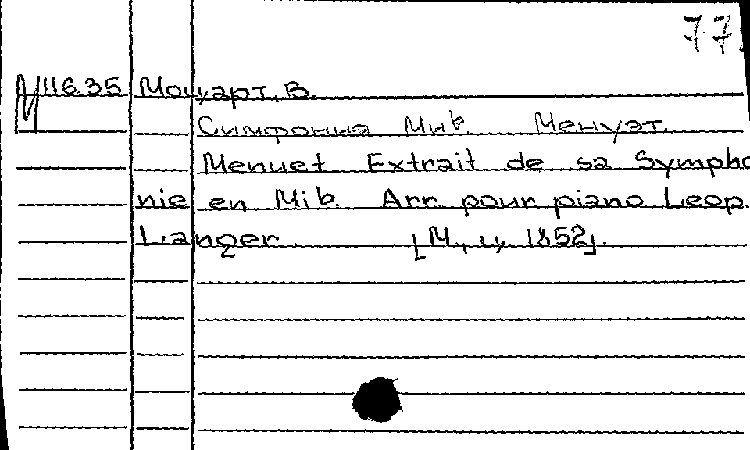 77
11635 Моцарт, В.
Симфония Миb. Менуэт.
Menuet Extrait de sa Sympho
nie en Mi b. Arr. pour piano Leop.
Langer [М., ц. 1852].